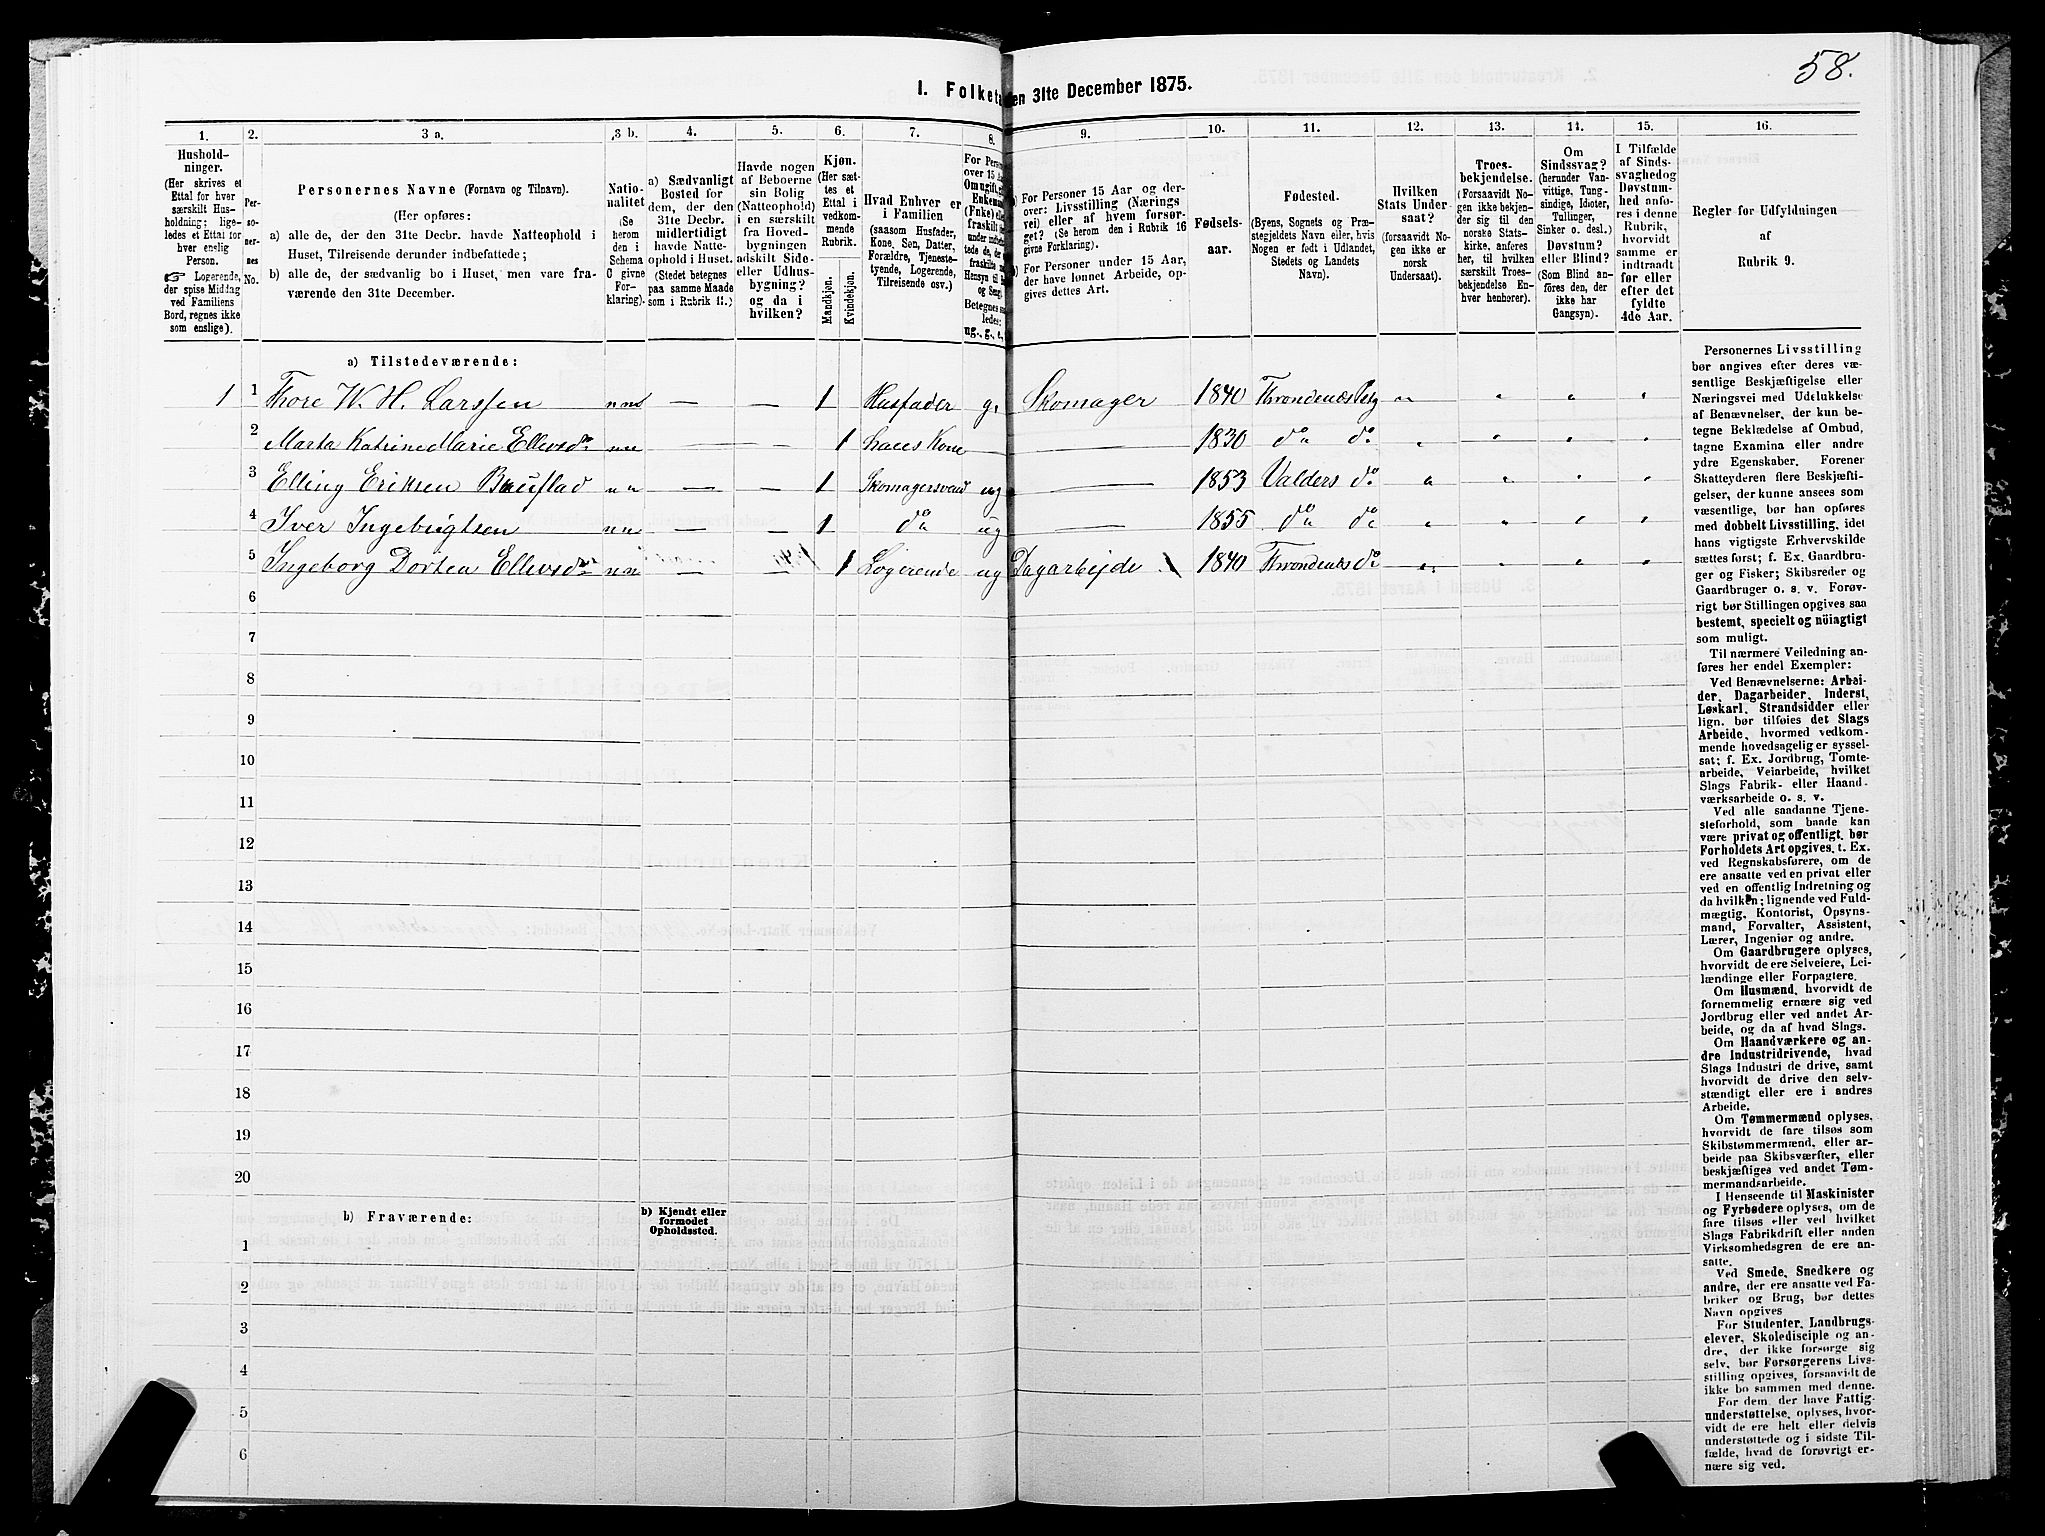 58.
I. Folketa
en 31te December 1875.
1. 2. 3 a. 3 b. 4. 5. 6. 7. 8. 9. 10. 11. 12. 13. 14. 15. 16.
Hushold-
ninger.
(Her skrives et
Ettal for hver
særskilt Hus-
holdning; lige-
ledes et Ettal for
hver enslig
Person.
☞ Logerende,
der spise Middag
ved Familiens
Bord, regnes ikke
som enslige).
Per-
so-
ner-
nes
No.
Personernes Navne (Fornavn og Tilnavn).
(Her opføres:
a) alle de, der den 31te Decbr. havde Natteophold i
Huset, Tilreisende derunder indbefattede;
b) alle de, der sædvanlig bo i Huset, men vare fra-
værende den 31te December.
Natio-
nalitet
(Se
herom
den i
Schema
C givne
For-
klaring).
a) Sædvanligt
Bosted for
dem, der den
31te Decbr.
midlertidigt
havde Natte-
ophold i Huset.
(Stedet betegnes
paa samme Maade
som i Rubrik 11.)
Havde nogen
af Beboerne
sin Bolig
(Natteophold)
i en særskilt
fra Hoved-
bygningen
adskilt Side-
eller Udhus-
bygning?
og da i
hvilken?
Kjøn.
(Her sæt-
tes et
Ettal i
vedkom-
mende
Rubrik.
Mandkjøn.
Kvindekjøn.
Hvad Enhver er
i Familien
(saasom Husfader,
Kone, Søn, Datter,
Forældre, Tjeneste-
tyende, Logerende,
Tilreisende osv.)
For Person
over 15 Aar
Om ugift, gi
Enkem
(Enke) elle
fraskilt
under indbe
tede de, de
fraskilte
Hensyn til
og Seng.
Betegnes saa
ledes:
ug., g., e.,
a) For Personer 15 Aar og der-
over: Livsstilling (Nærings
vei) eller af hvem forsør-
get? (Se herom den i Rubrik 16
givne Forklaring.)
b) For Personer under 15 Aar,
der have lønnet Arbeide, op-
gives dettes Art.
Fødsels-
aar.
Fødested.
(Byens, Sognets og Præ-
stegjeldets Navn eller, hvis
Nogen er født i Udlandet,
Stedets og Landets
Navn).
Hvilken
Stats Under-
saat?
(forsaavidt No-
gen ikke er
norsk
Undersaat).
Troes-
bekjendelse.
(Forsaavidt No-
gen ikke bekjen-
der sig til den
norske Stats-
kirke, anføres
her, til hvilken
særskilt Troes-
bekjendelse En-
hver henhører).
Om
Sindssvag?
(herunder Van-
vittige, Tung-
sindige, Idioter,
Tullinger,
Sinker o. desl.)
Døvstum?
eller Blind?
(Som Blind an-
føres den, der
ikke har
Gangsyn).
I Tilfælde
af Sinds-
svaghed og
Døvstum-
hed anfø-
res i denne
Rubrik,
hvorvidt
samme er
indtraadt
før eller
efter det
fyldte
4de Aar.
Regler for Udfyldningen
af
Rubrik 9.
a) Tilstedeværende:
1 1 Thore W. H. Larssen nnt — — 1 Husfader g. Skomager 1840 Throndenæs Psg
2 Marta Katrine Marie Ellevsdr nn — — 1 hans Kone — 1830 do do
3 Elling Eriksen nn — — 1 Skomagersvend ug — 1853 Valders do
4 Iver Ingebrigtsen nn — — 1 do ug — 1855 do do
5 Ingeborg Dortea Ellevsdr nn — — 1 Logerende ug Dagarbejde 1840 Throndenæs do
6
7
8
9
10
11
12
13
14
15
16
17
18
19
20
b) Fraværende:
b) Kjendt eller
formodet
Opholdssted.
1
2
3
4
5
6
Personernes Livsstilling
bør angives efter deres væ-
sentlige Beskjæftigelse eller
Næringsvei med Udelukkelse
af Benævnelser, der kun be-
tegne Beklædelse af Ombud,
tagne Examina eller andre
ydre Egenskaber. Forener
Skatteyderen flere Beskjæfti-
gelser, der kunne ansees som
væsentlige, bør han opføres
med dobbelt Livsstilling, idet
hans vigtigste Erhvervskilde
sættes først; f. Ex. Gaardbru-
ger og Fisker; Skibsreder og
Gaardbruger o. s. v. Forøv-
rigt bør Stillingen opgives saa
bestemt, specielt og nøiagtigt
som muligt.
Til nærmere Veiledning an-
føres her endel Exempler:
Ved Benævnelserne: Arbei-
der, Dagarbeider, Inderst,
Løskarl, Strandsidder eller
lign. bør tilføies det Slags
Arbeide, hvormed vedkom-
mende hovedsagelig er syssel-
sat; f. Ex. Jordbrug, Tomte-
arbeide, Veiarbeide, hvilket
Slags Fabrik- eller Haand-
værksarbeide o. s. v.
Ved alle saadanne Tjene-
steforhold, som baade kan
være privat og offentligt, bør
Forholdets Art opgives, t. Ex.
ved Regnskabsførere, om de
ere ansatte ved en privat eller
ved en offentlig Indretning og
da hvilken; lignende ved Fuld-
mægtig, Kontorist, Opsyns-
mand, Forvalter, Assistent,
Lærer, Ingeniør og andre.
Om Gaardbrugere oplyses,
hvorvidt de ere Selveiere, Lei-
lændinge eller Forpagtere.
Om Husmænd, hvorvidt de
fornemmelig ernære sig ved
Jordbrug eller ved andet Ar-
beide, og da af hvad Slags.
Om Haandværkere og an-
dre Industridrivende, hvad
Slags Industri de drive, samt
hvorvidt de drive den selv-
stændigt eller ere i andres
Arbeide.
Om Tømmermænd oplyses,
hvorvidt de fare tilsøs som
Skibstømmermænd, eller ar-
beide paa Skibsværfter, eller
beskjæftiges ved andet Tøm-
mermandsarbeide.
I Henseende til Maskinister
og Fyrbødere oplyses, om de
fare tilsøs eller ved hvilket
Slags Fabrikdrift eller anden
Virksomhedsgren de ere an-
satte.
Ved Smede, Snedkere og
andre, der ere ansatte ved Fa-
briker og Brug, bør dettes
Navn opgives
For Studenter, Landbrugs-
elever, Skoledisciple og an-
dre, der ikke forsørge sig
selv, bør Forsørgerens Livs-
stilling opgives, forsaavidt de
ikke bo sammen med denne.
For dem, der have Fattig-
understøttelse, oplyses, hvor-
vidt de ere helt eller delvis
understøttede og i sidste Til-
fælde, hvad de forøvrigt er-
nære sig ved.